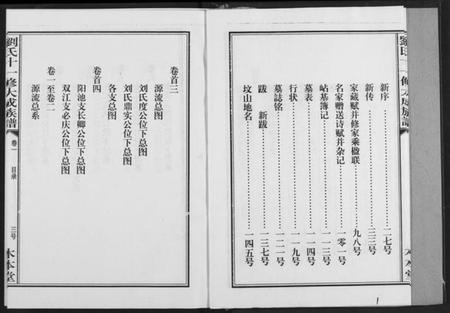 劉氏十一修大成族譜
新序 二七号
新传 三三号
家藏赋并修家乘楹联 九八号
名家赠送诗赋并杂记 一〇一号
岵基簿记 一一三号
墓表 一一四号
行状 一一九号
墓誌铭 一二一号
跋 新跋 一三七号
坟山地名 一四五号
木本堂
1
卷首三
源流总图
刘氏度公位下总图
刘氏鼎实公位下总图
各支总图
卷首四
阳池支长卿公位下总图
双江支必庆公位下总图
卷一至卷二
源流总系
劉氏十一修大成族譜
卷一
目录
三号
木本堂